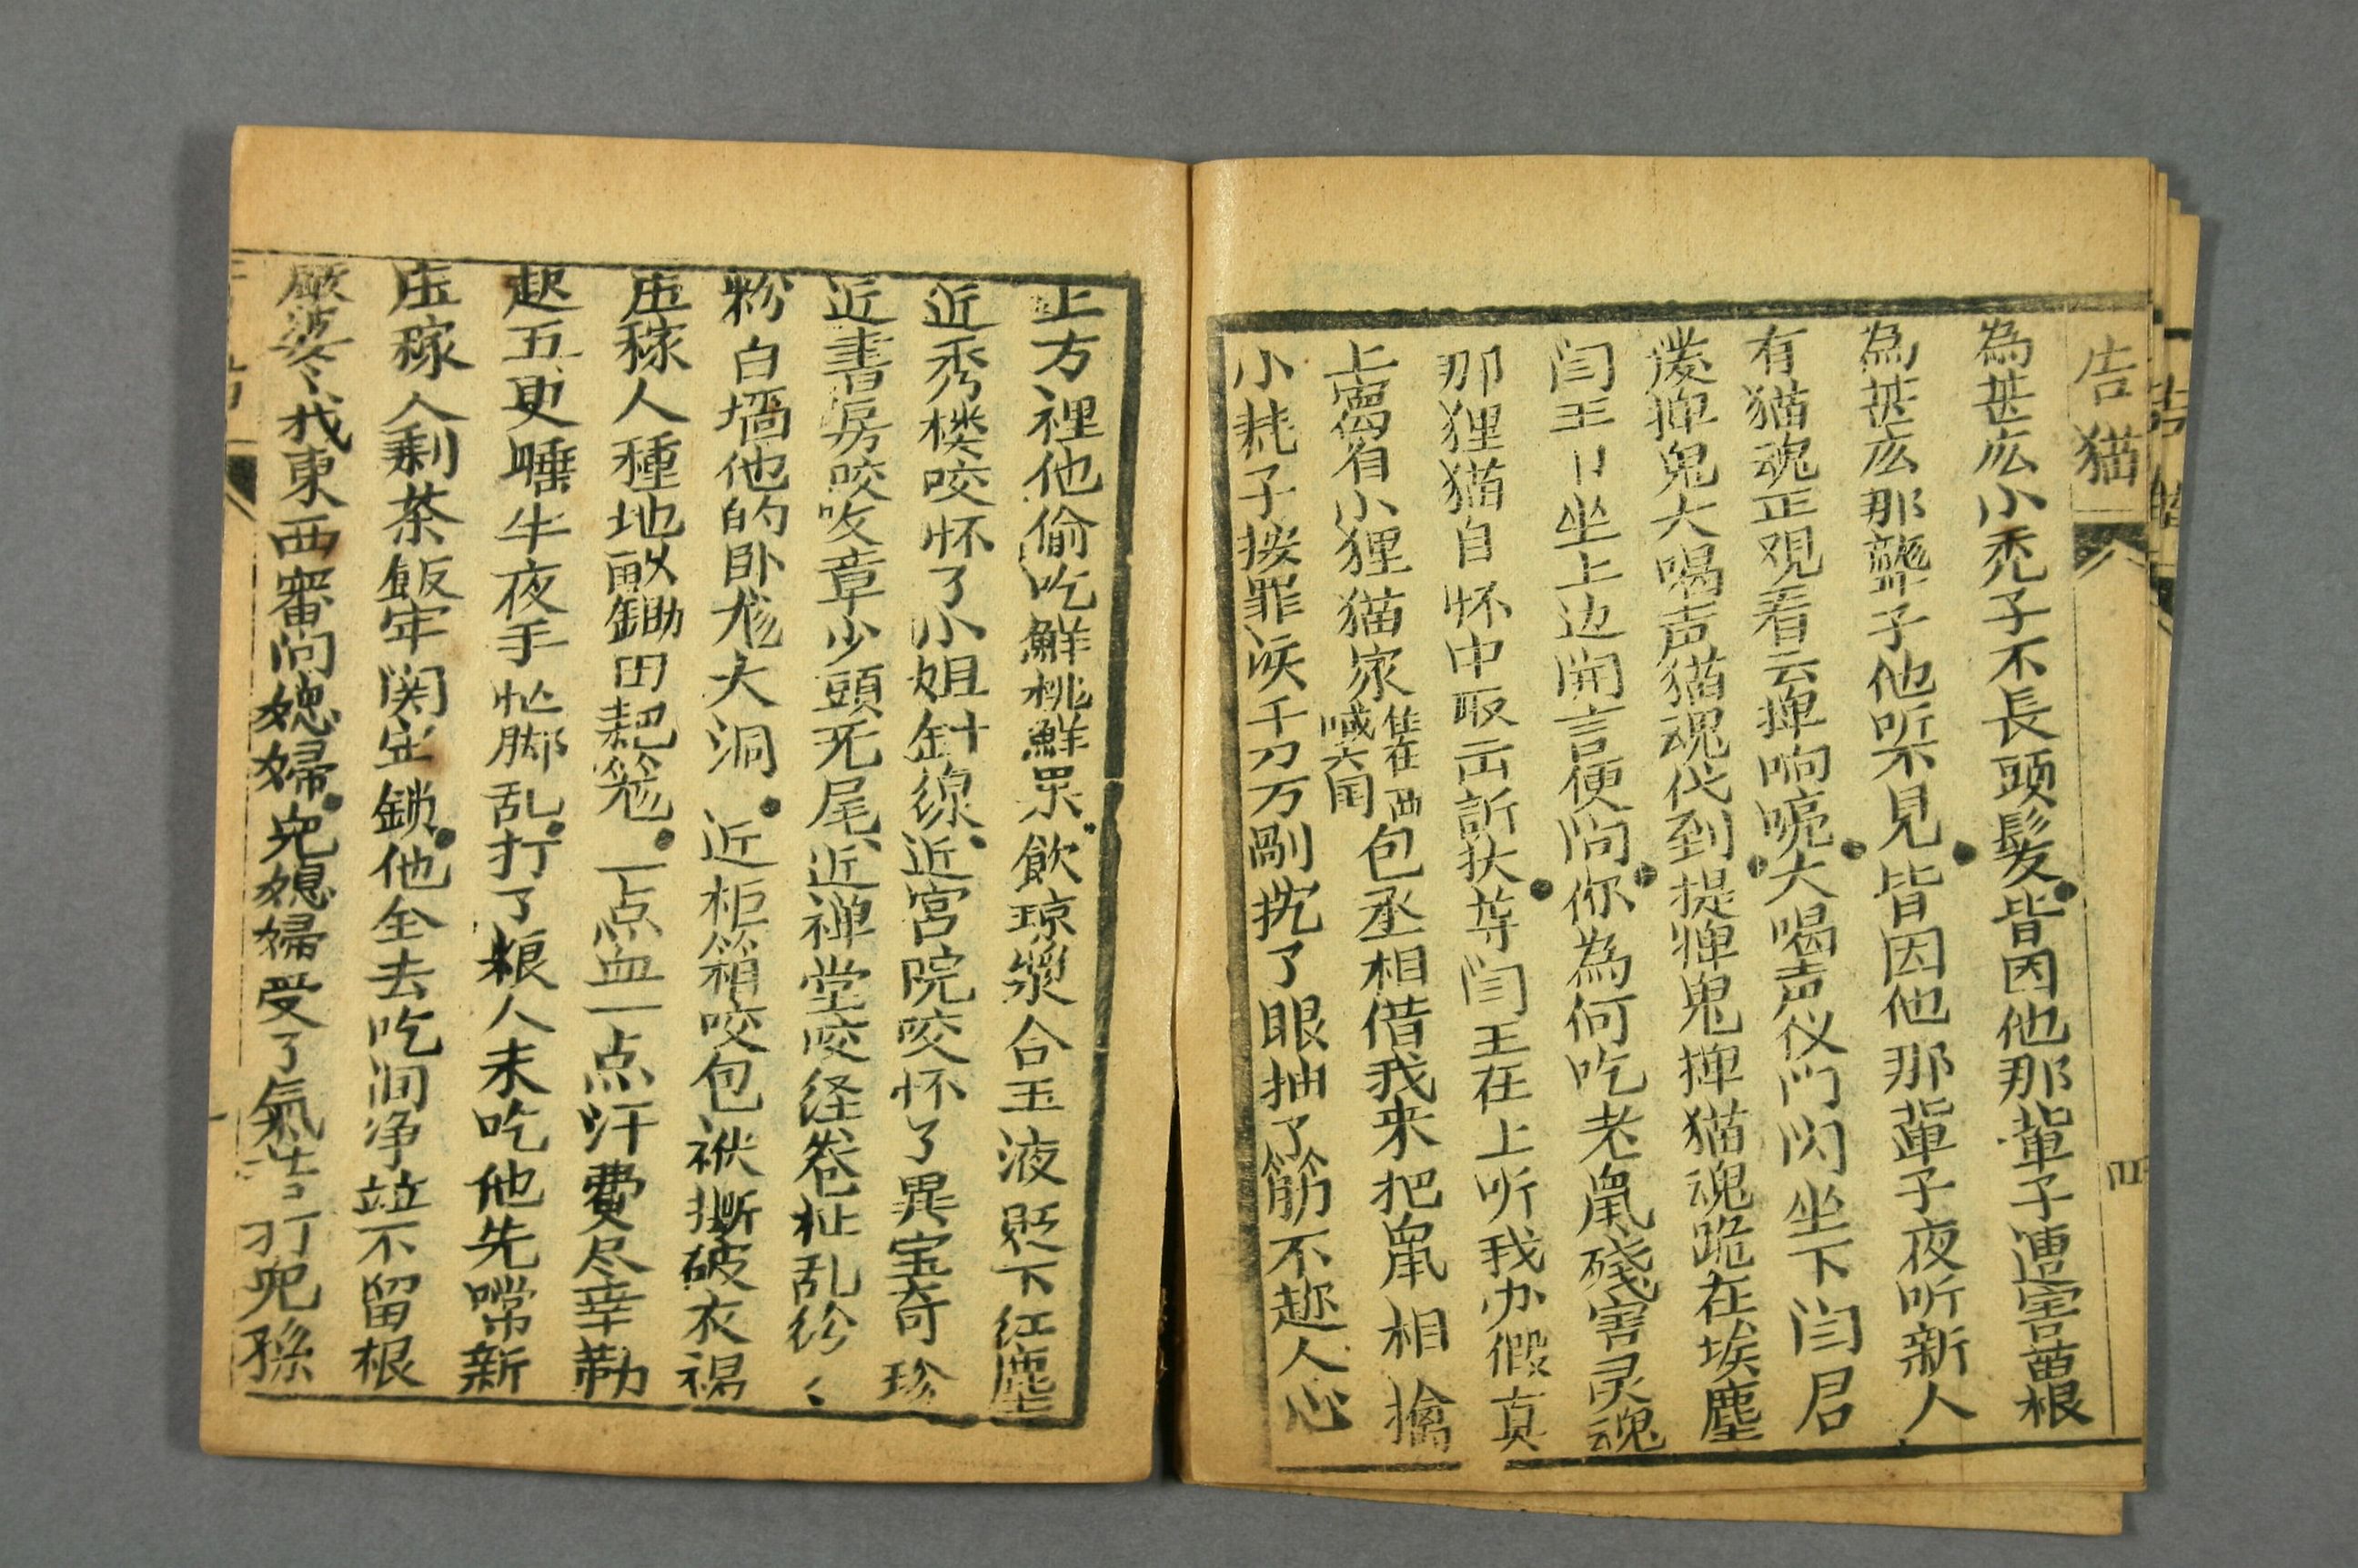 告猫
四
為甚広小禿子不長頭髪皆因他那輩子遭害苗根
為甚広那聾子他听不見皆因他那輩子夜听新人
有猫魂正观看云擅响喨大喝声仪门闪坐下闫君
鬼大喝声猫魂伐到提鬼猫魂跪在埃塵
闫王刂坐上边開言便问你為何吃老鼠殘害灵魂
那狸猫自怀中取出訴状等闫王在上听我办假真
上寫着小狸猫家住在西喊天闻包丞相借我来把鼠相擒
小耗子按罪该千刀万剮挖了眼抽了筋不趂人心
上方裡他偷吃鮮桃鮮果飲琼漿合玉液貶下红塵
近秀楼咬怀了小姐針線近宮院咬怀了異宝奇珍
近書房咬文章少頭无尾近禅堂咬经卷扯乱纷〻
粉白墙他的卧龙大洞近柜箱咬包袱撕破衣裼
庄稼人種地畝鋤田耙笼一点血一点汗費尽辛勤
起五更睡半夜手忙脚乱打了粮人未吃他先嚐新
庄稼人剩茶飯牢関牢鎖他全去吃润净並不留根
厰婆〻找東西審问媳婦児媳婦受了氣打児孫